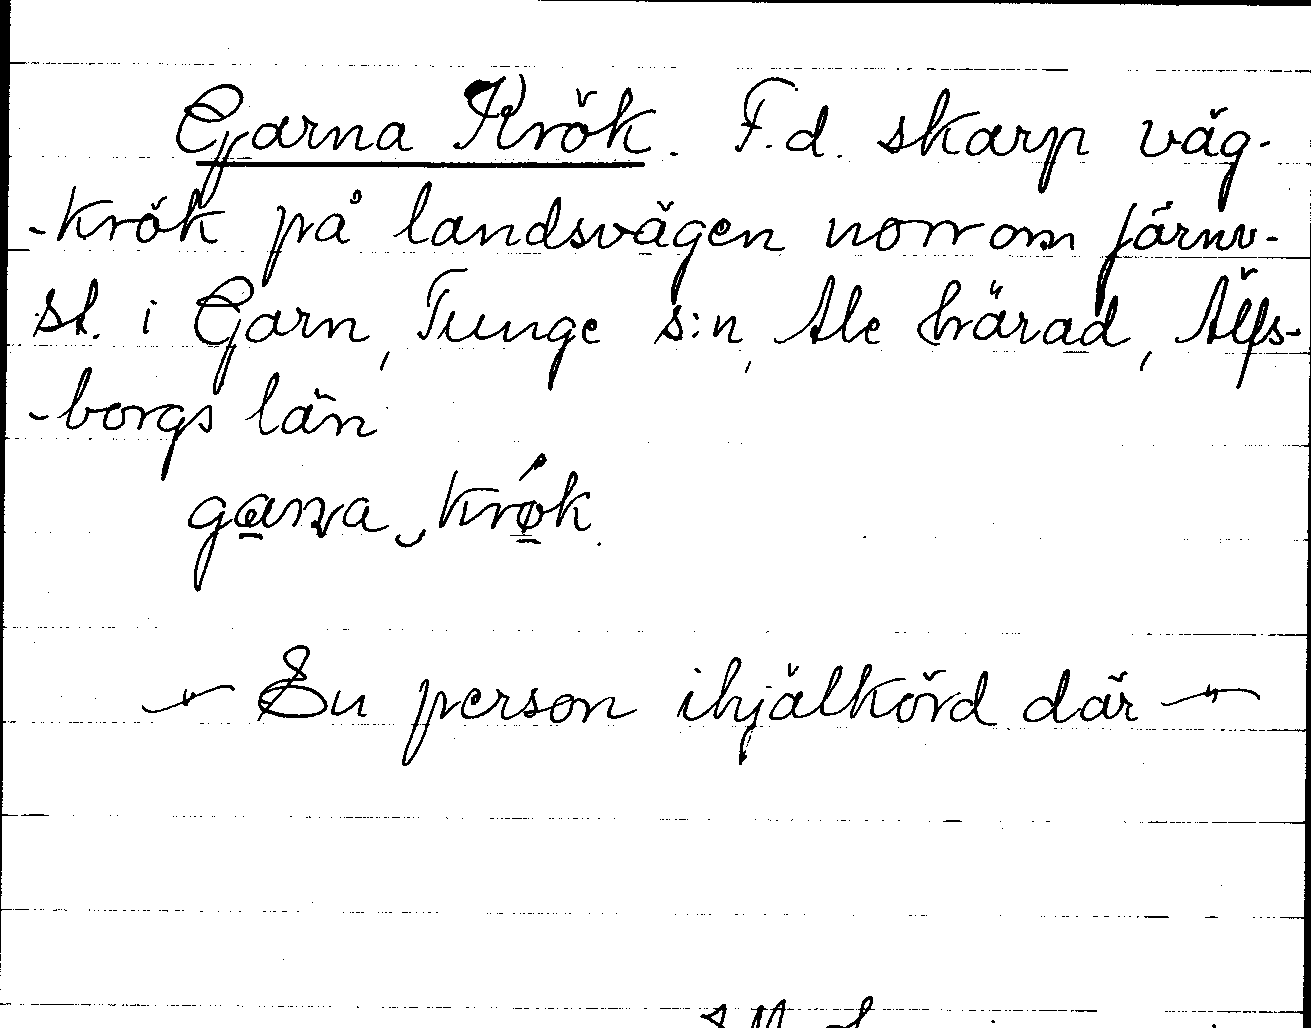 Garna Krök. F.d. skarp väg-
-krök på landsvägen norrom järnv-
st. i Garn, Tunge s:n, Ale härad, Älfs-
-borgs län
garna krök.
En person ihjälkörd där